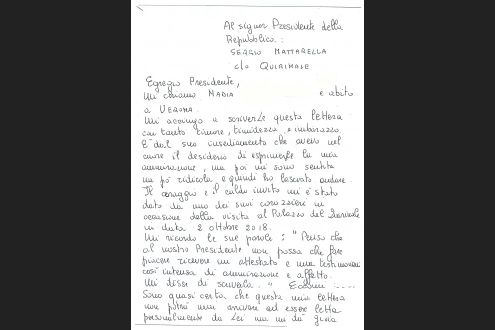 Al signor Presidente della
Repubblica:
SERGIO MATTARELLA
c/o QUIRINALE
Egregio Presidente,
Mi chiamo NADIA e abito
a VERONA.
Mi accingo a scriverLe questa lettera
con tanto timore, timidezza e imbarazzo.
E' dal suo insediamento che avevo nel
cuore il desiderio di esprimerLe la mia
ammirazione, ma poi mi sono sentita
un po' ridicola e quindi ho lasciato andare.
Il coraggio e il caldo invito mi è stato
dato da uno dei suoi corazzieri in
occasione della visita al Palazzo del Quirinale
in data 2 ottobre 2018.
Mi ricordo le sue parole: "Penso che
al nostro Presidente non possa che fare
piacere ricevere un attestato e una testimonianza
così intensa di ammirazione e affetto.
Mi disse di scriverla." Eccomi .....
Sono quasi certa che questa mia lettera
non potrà mai arrivare ad essere letta
personalmente da Lei ma mi dà gioia